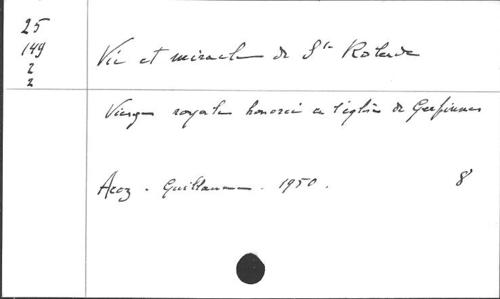 25
149
2
2
Vie et miracles de Ste Rolende
Vierge royale honorée en l'église de Gerpinnes
Acoz - Guillaume - 1950. 8°